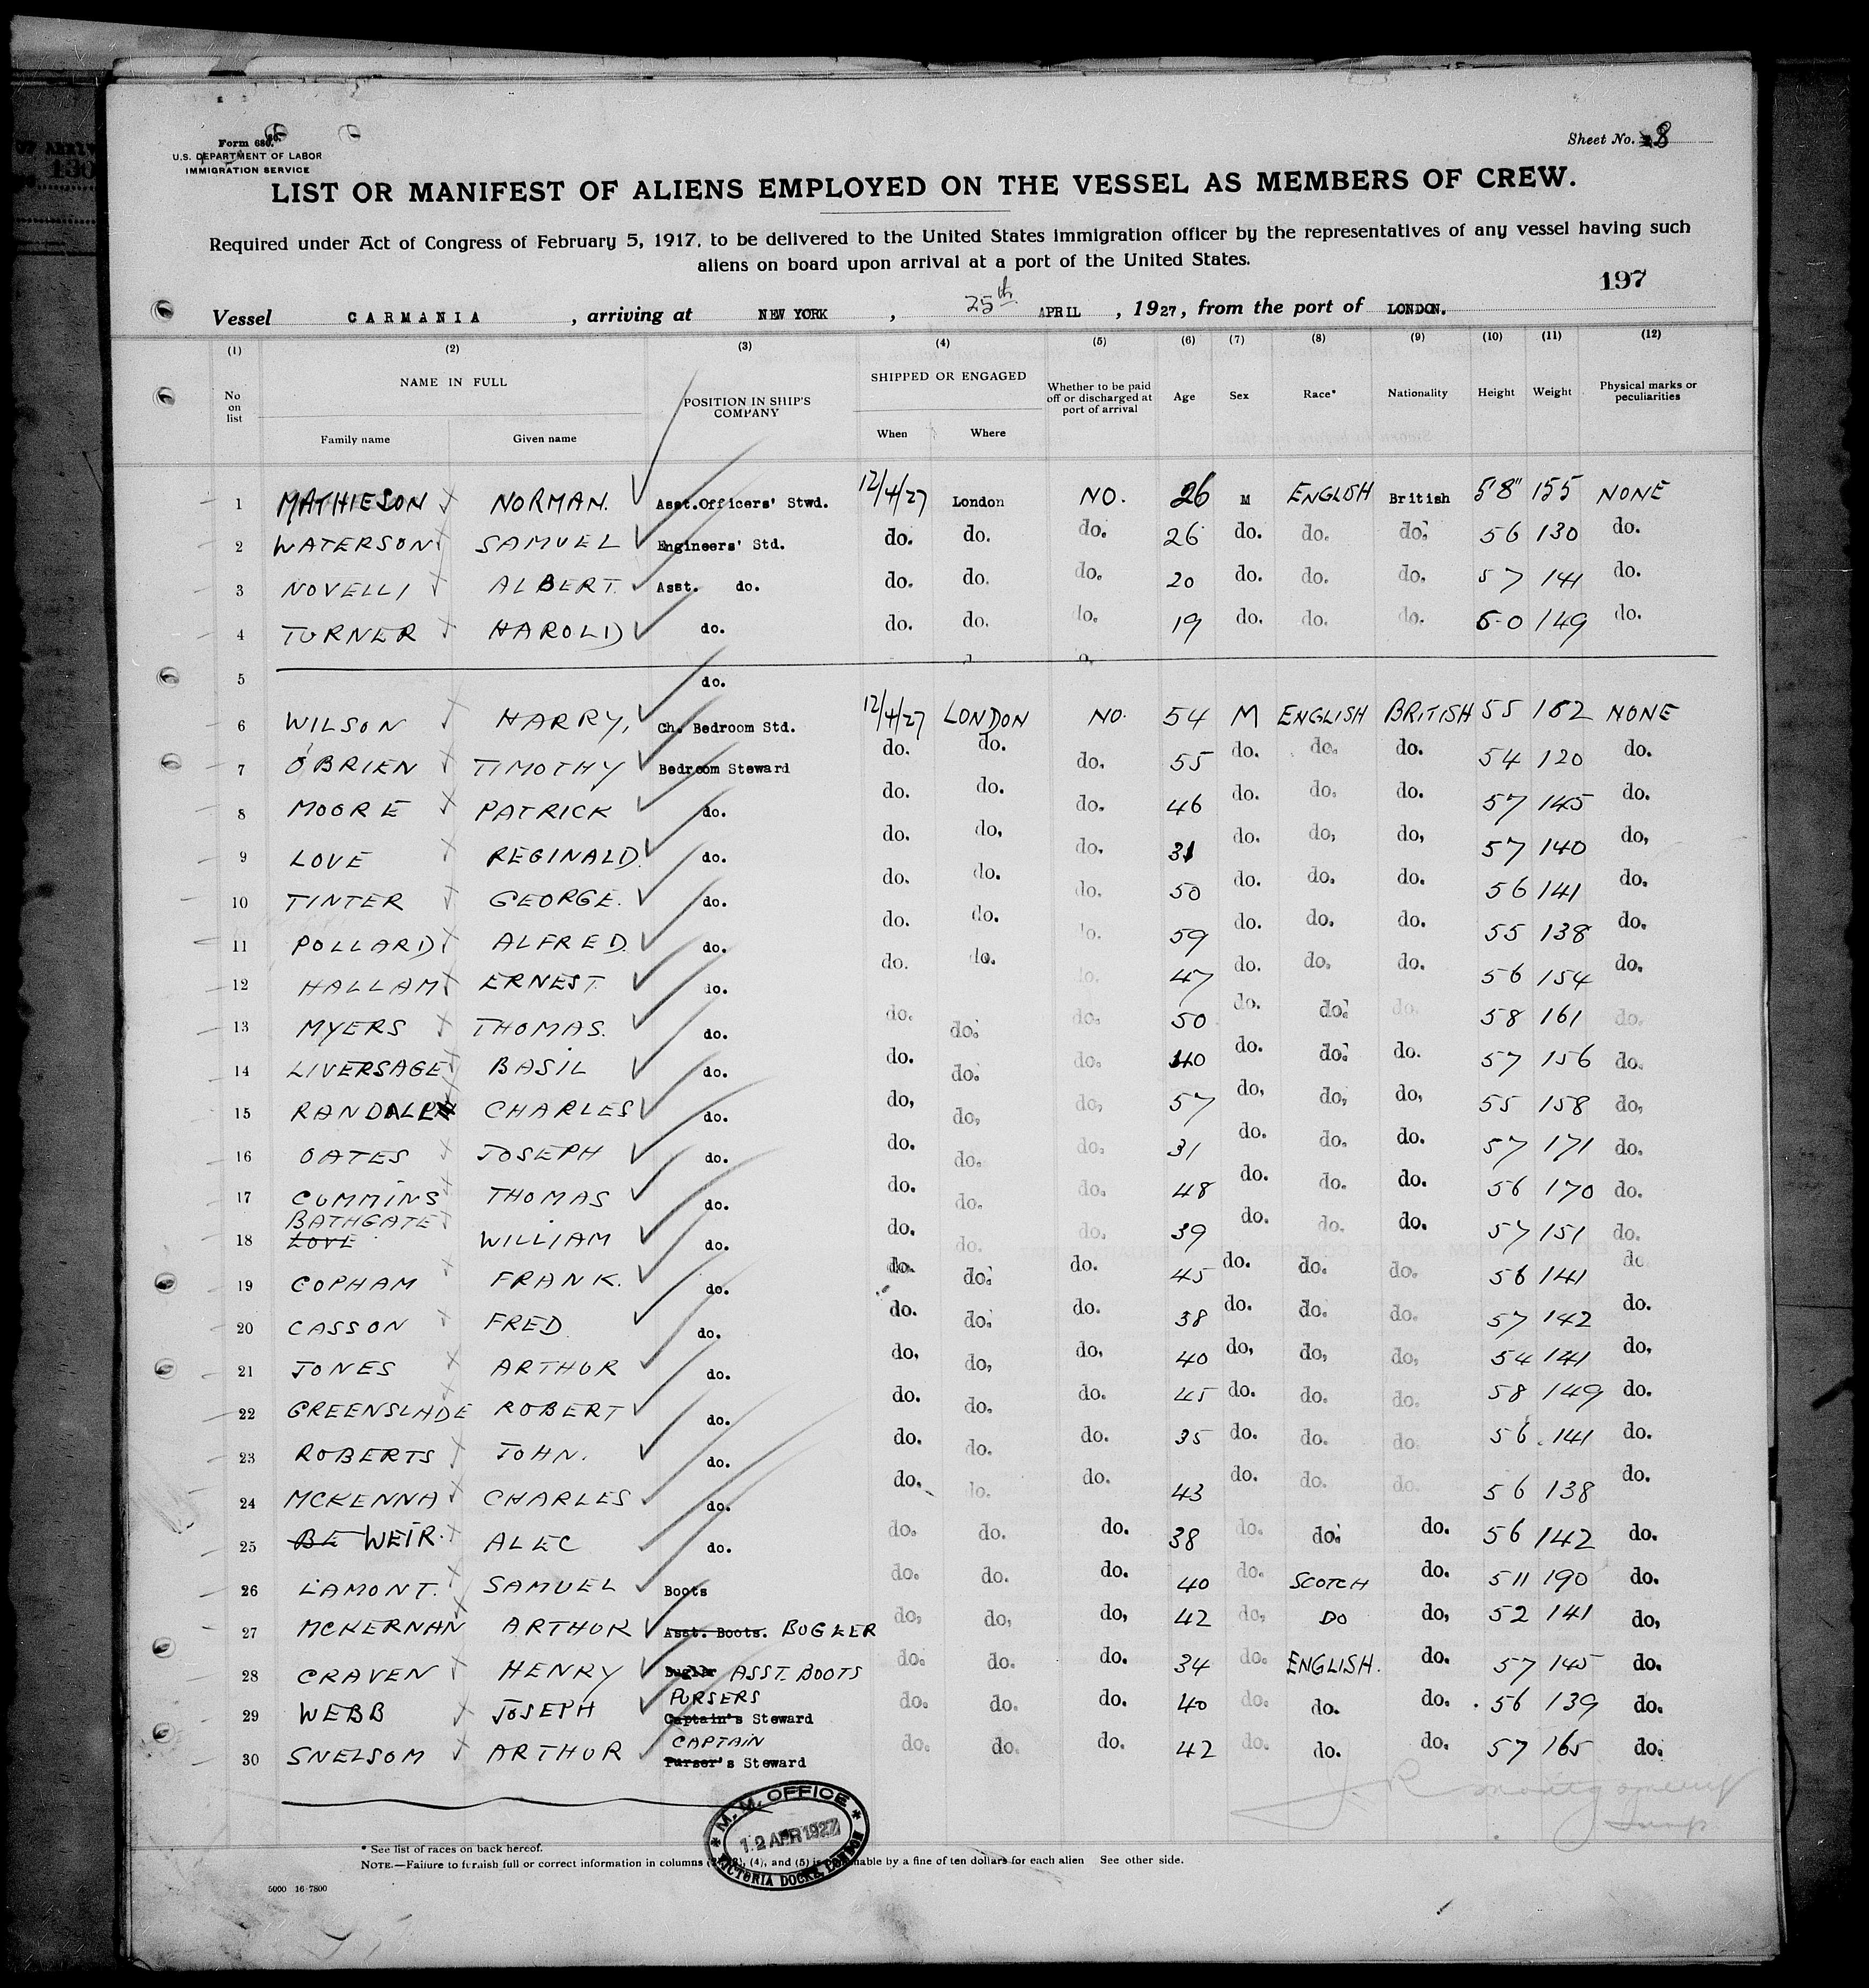 Form 680.
U.S. DEPARTMENT OF LABOR
IMMIGRATION SERVICE
Sheet No. 8
LIST OR MANIFEST OF ALIENS EMPLOYED ON THE VESSEL AS MEMBERS OF CREW.
Required under Act of Congress of February 5, 1917, to be delivered to the United States immigration officer by the representatives of any vessel having such
aliens on board upon arrival at a port of the United States.
197
Vessel CARMANIA, arriving at NEW YORK, 25th APRIL, 1927, from the port of LONDON.
(1) (2) (3) (4) (5) (6) (7) (8) (9) (10) (11) (12)
No on list NAME IN FULL Family name Given name POSITION IN SHIP'S COMPANY SHIPPED OR ENGAGED When Where Whether to be paid off or discharged at port of arrival Age Sex Race* Nationality Height Weight Physical marks or peculiarities
1 MATHIESON NORMAN. Asst.Officers' Stwd. 12/4/27 London NO. 26 M ENGLISH British 5'8" 155 NONE
2 WATERSON SAMUEL Engineers' Std. do. do. do. 26 do. do. do. 56 130 do.
3 NOVELLI ALBERT. Asst. do. do. do. do. 20 do. do. do. 57 141 do.
4 TURNER HAROLD do. do. do. do. 19 do. do. do. 6-0 149 do.
5 do.
6 WILSON HARRY, Ch. Bedroom Std. 12/4/27 LONDON NO. 54 M ENGLISH BRITISH 55 162 NONE
7 O'BRIEN TIMOTHY Bedroom Steward do. do. do. 55 do. do. do. 54 120 do.
8 MOORE PATRICK do. do. do. do. 46 do. do. do. 57 145 do.
9 LOVE REGINALD. do. do. do, do. 31 do. do, do, 57 140 do,
10 TINTER GEORGE. do. do. do. do. 50 do. do. do. 56 141 do.
11 POLLARD ALFRED. do. do. do. do. 59 do. do. do. 55 138 do.
12 HALLAM ERNEST. do. do. do. do. 47 do. do. do. 56 154 do.
13 MYERS THOMAS. do. do. do. do. 50 do. do. do. 58 161 do.
14 LIVERSAGE BASIL do. do. do. do. 40 do. do. do. 57 156 do.
15 RANDALPH CHARLES do. do, do, do, 57 do, do, do, 55 158 do,
16 OATES JOSEPH do. do. do. do. 31 do. do. do. 57 171 do.
17 CUMMINS THOMAS do. do. do. do. 48 do. do. do. 56 170 do.
BATHGATE
18 LOVE WILLIAM do. do. do. do. 39 do. do. do. 57 151 do.
19 COPHAM FRANK. do. do. do. do. 45 do. do. do. 56 141 do.
20 CASSON FRED do. do. do. do. 38 do. do. do. 57 142 do.
21 JONES ARTHUR do. do, do, do, 40 do, do, do, 54 141 do,
22 GREENSLADE ROBERT do. do. do. do. 45 do. do. do. 58 149 do.
23 ROBERTS JOHN. do. do. do. do. 35 do. do. do. 56 141 do.
24 MCKENNA CHARLES do. do. do. do. 43 do. do. do. 56 138 do.
25 BE WEIR. ALEC do. do. do. do. 38 do. do. do. 56 142 do.
26 LAMONT. SAMUEL Boots do. do. do. 40 do. SCOTCH do. 511 190 do.
27 MCKERNAN ARTHUR Asst. Boots. BUGLER do, do, do, 42 do, DO do, 52 141 do,
28 CRAVEN HENRY Bugler ASST. BOOTS do. do. do. 34 do. ENGLISH. do. 57 145 do.
PURSERS
29 WEBB JOSEPH Captain's Steward do. do. do. 40 do. do. do. 56 139 do.
CAPTAIN
30 SNELSOM ARTHUR Purser's Steward do. do. do. 42 do. do. do. 57 165 do.
J R Montgomery
M. M. OFFICE
12 APR 1927
VICTORIA DOCKS, LONDON
* See list of races on back hereof.
NOTE.—Failure to furnish full or correct information in columns (4), and (5) is by a fine of ten dollars for each alien See other side.
5000 16-7800